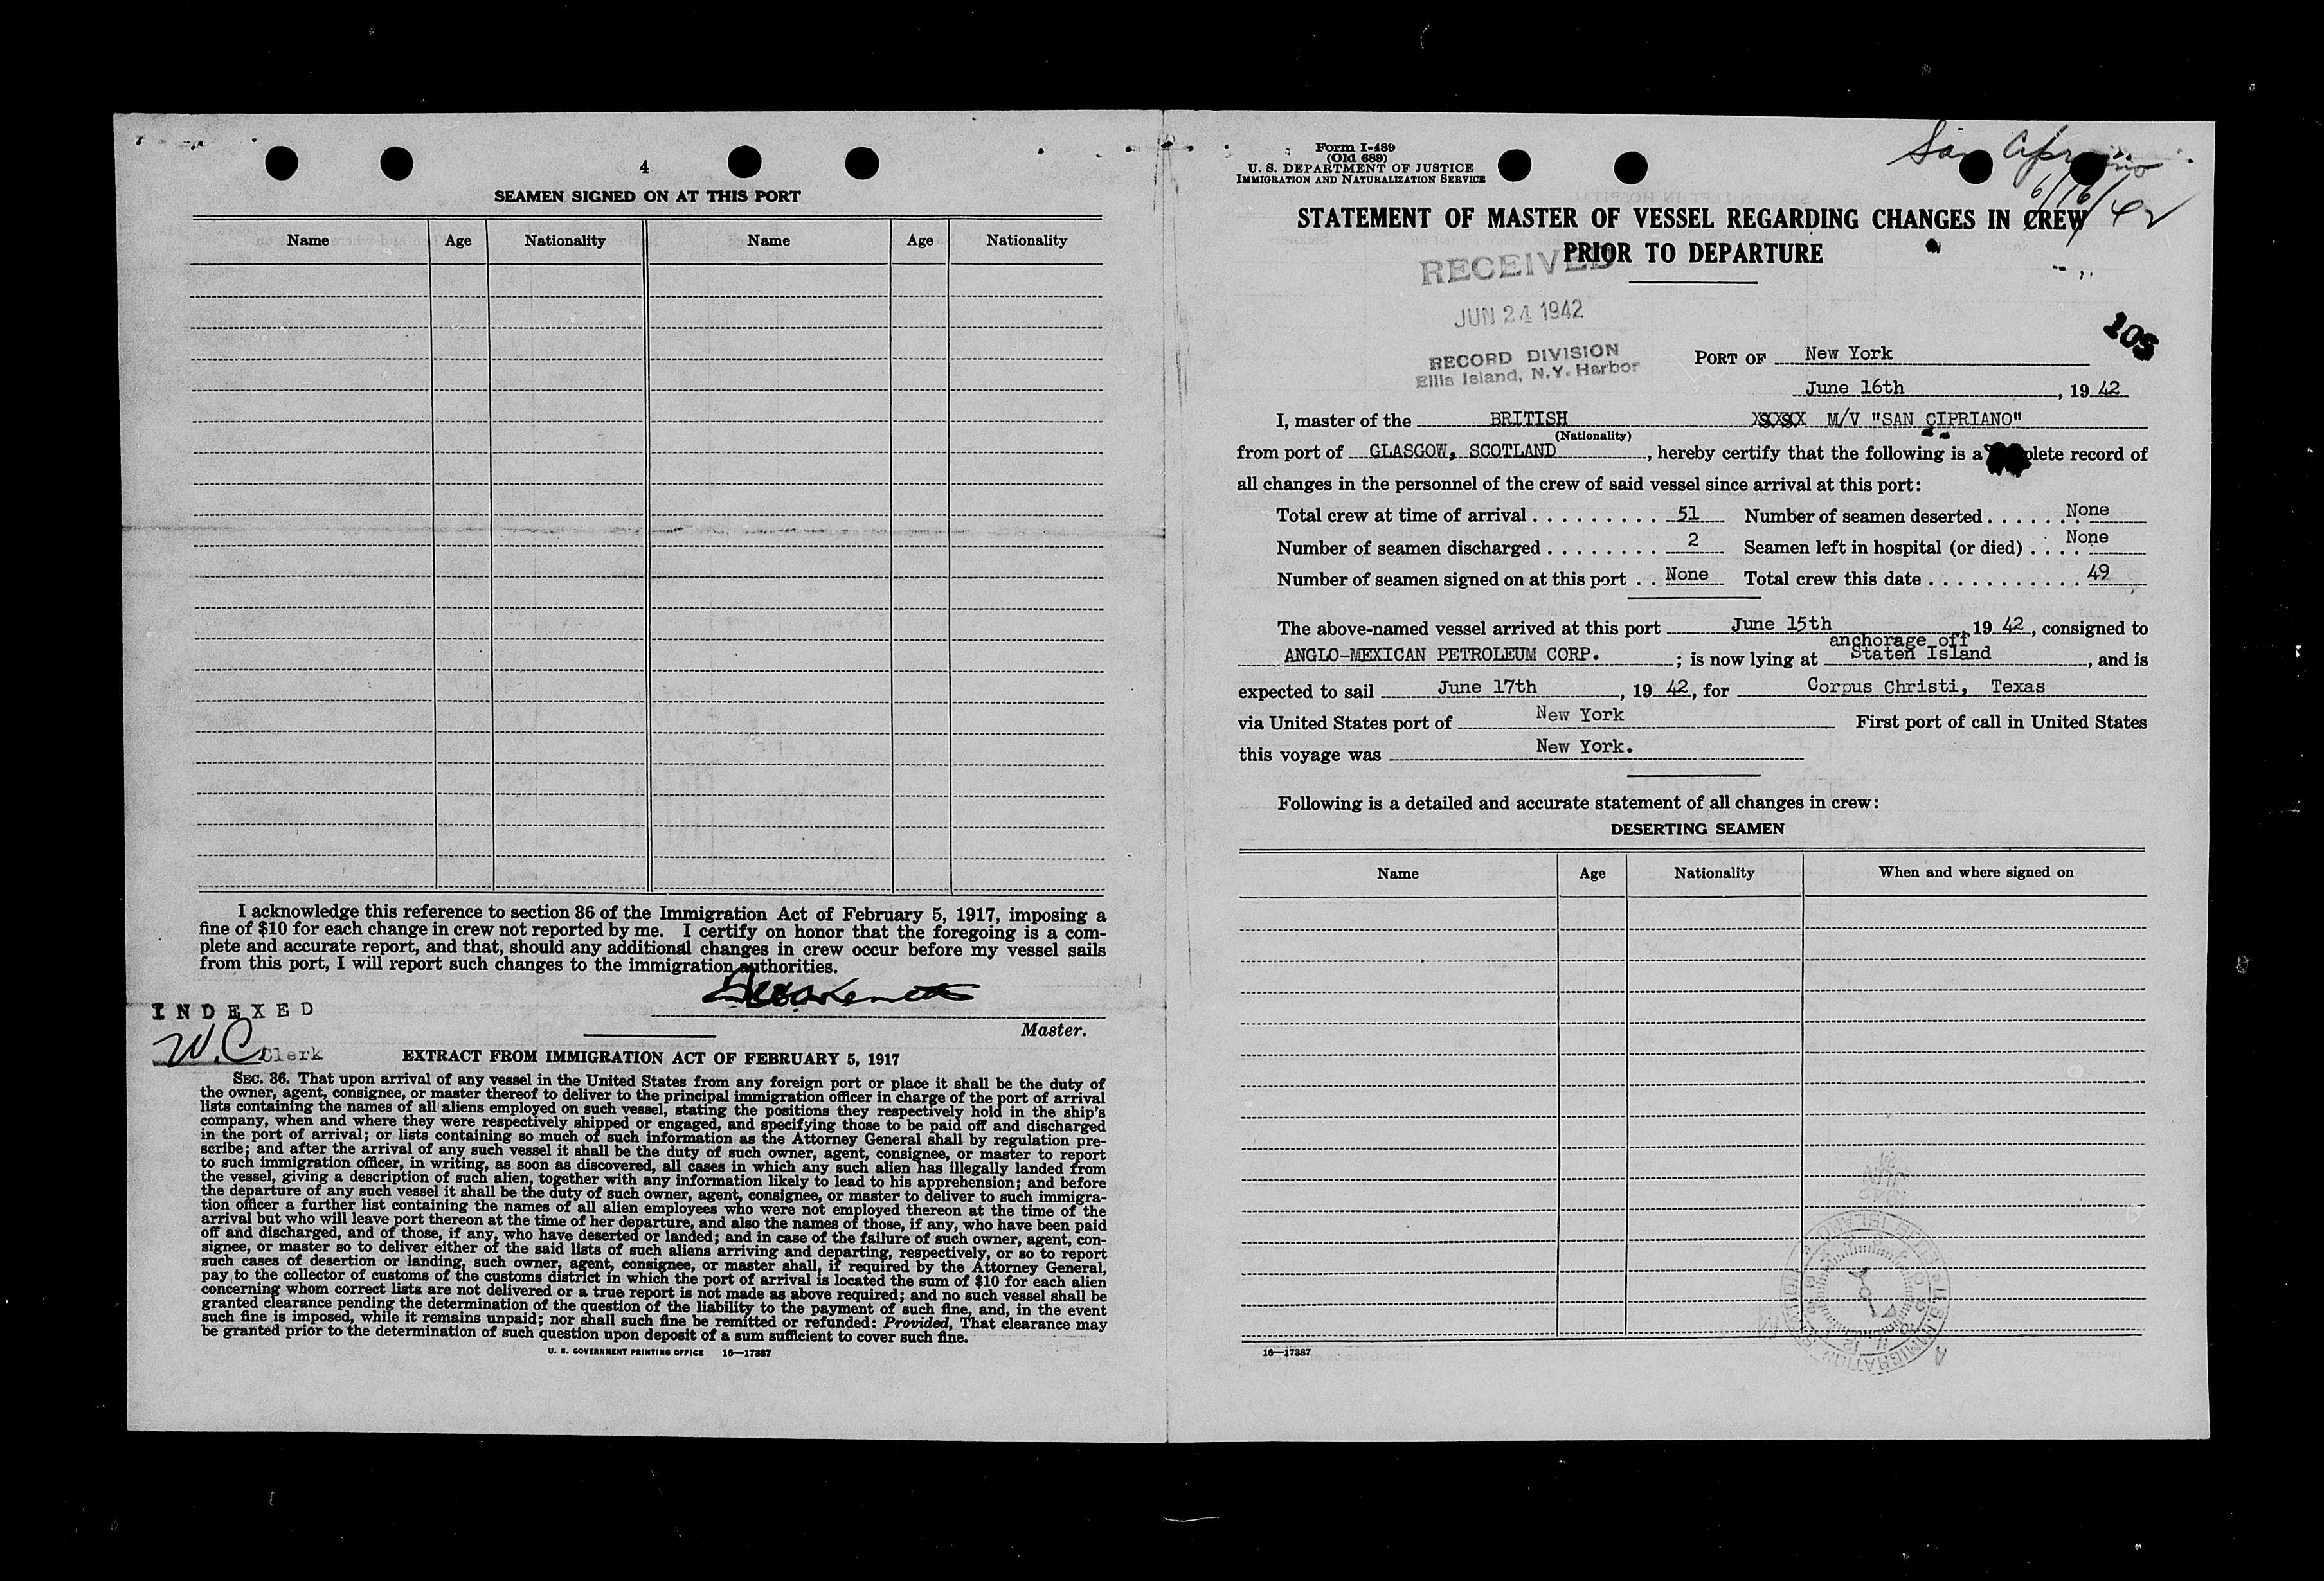 4
SEAMEN SIGNED ON AT THIS PORT
Name Age Nationality Name Age Nationality
I acknowledge this reference to section 36 of the Immigration Act of February 5, 1917, imposing a
fine of $10 for each change in crew not reported by me. I certify on honor that the foregoing is a com-
plete and accurate report, and that, should any additional changes in crew occur before my vessel sails
from this port, I will report such changes to the immigration authorities.
Master.
INDEXED
W.C. Clerk
EXTRACT FROM IMMIGRATION ACT OF FEBRUARY 5, 1917
SEC. 36. That upon arrival of any vessel in the United States from any foreign port or place it shall be the duty of
the owner, agent, consignee, or master thereof to deliver to the principal immigration officer in charge of the port of arrival
lists containing the names of all aliens employed on such vessel, stating the positions they respectively hold in the ship's
company, when and where they were respectively shipped or engaged, and specifying those to be paid off and discharged
in the port of arrival; or lists containing so much of such information as the Attorney General shall by regulation pre-
scribe; and after the arrival of any such vessel it shall be the duty of such owner, agent, consignee, or master to report
to such immigration officer, in writing, as soon as discovered, all cases in which any such alien has illegally landed from
the vessel, giving a description of such alien, together with any information likely to lead to his apprehension; and before
the departure of any such vessel it shall be the duty of such owner, agent, consignee, or master to deliver to such immigra-
tion officer a further list containing the names of all alien employees who were not employed thereon at the time of the
arrival but who will leave port thereon at the time of her departure, and also the names of those, if any, who have been paid
off and discharged, and of those, if any, who have deserted or landed; and in case of the failure of such owner, agent, con-
signee, or master so to deliver either of the said lists of such aliens arriving and departing, respectively, or so to report
such cases of desertion or landing, such owner, agent, consignee, or master shall, if required by the Attorney General,
pay to the collector of customs of the customs district in which the port of arrival is located the sum of $10 for each alien
concerning whom correct lists are not delivered or a true report is not made as above required; and no such vessel shall be
granted clearance pending the determination of the question of the liability to the payment of such fine, and, in the event
such fine is imposed, while it remains unpaid; nor shall such fine be remitted or refunded: Provided, That clearance may
be granted prior to the determination of such question upon deposit of a sum sufficient to cover such fine.
U. S. GOVERNMENT PRINTING OFFICE 16—17387
Form I-489
(Old 689)
U. S. DEPARTMENT OF JUSTICE
IMMIGRATION AND NATURALIZATION SERVICE
San Cipriano
6/16/42
STATEMENT OF MASTER OF VESSEL REGARDING CHANGES IN CREW
PRIOR TO DEPARTURE
RECEIVED
JUN 24 1942
RECORD DIVISION
Ellis Island, N.Y. Harbor
105
PORT OF New York
June 16th, 1942
I, master of the BRITISH XXXXX M/V "SAN CIPRIANO"
(Nationality)
from port of GLASGOW, SCOTLAND, hereby certify that the following is a plete record of
all changes in the personnel of the crew of said vessel since arrival at this port:
Total crew at time of arrival . . . . . . . . . 51 Number of seamen deserted . . . . . . . None
Number of seamen discharged . . . . . . . . 2 Seamen left in hospital (or died) . . . . None
Number of seamen signed on at this port . . None Total crew this date . . . . . . . . . . . 49
The above-named vessel arrived at this port June 15th 1942, consigned to
anchorage off
ANGLO-MEXICAN PETROLEUM CORP. ; is now lying at Staten Island, and is
expected to sail June 17th, 1942, for Corpus Christi, Texas
via United States port of New York First port of call in United States
this voyage was New York.
Following is a detailed and accurate statement of all changes in crew:
DESERTING SEAMEN
Name Age Nationality When and where signed on
16—17387